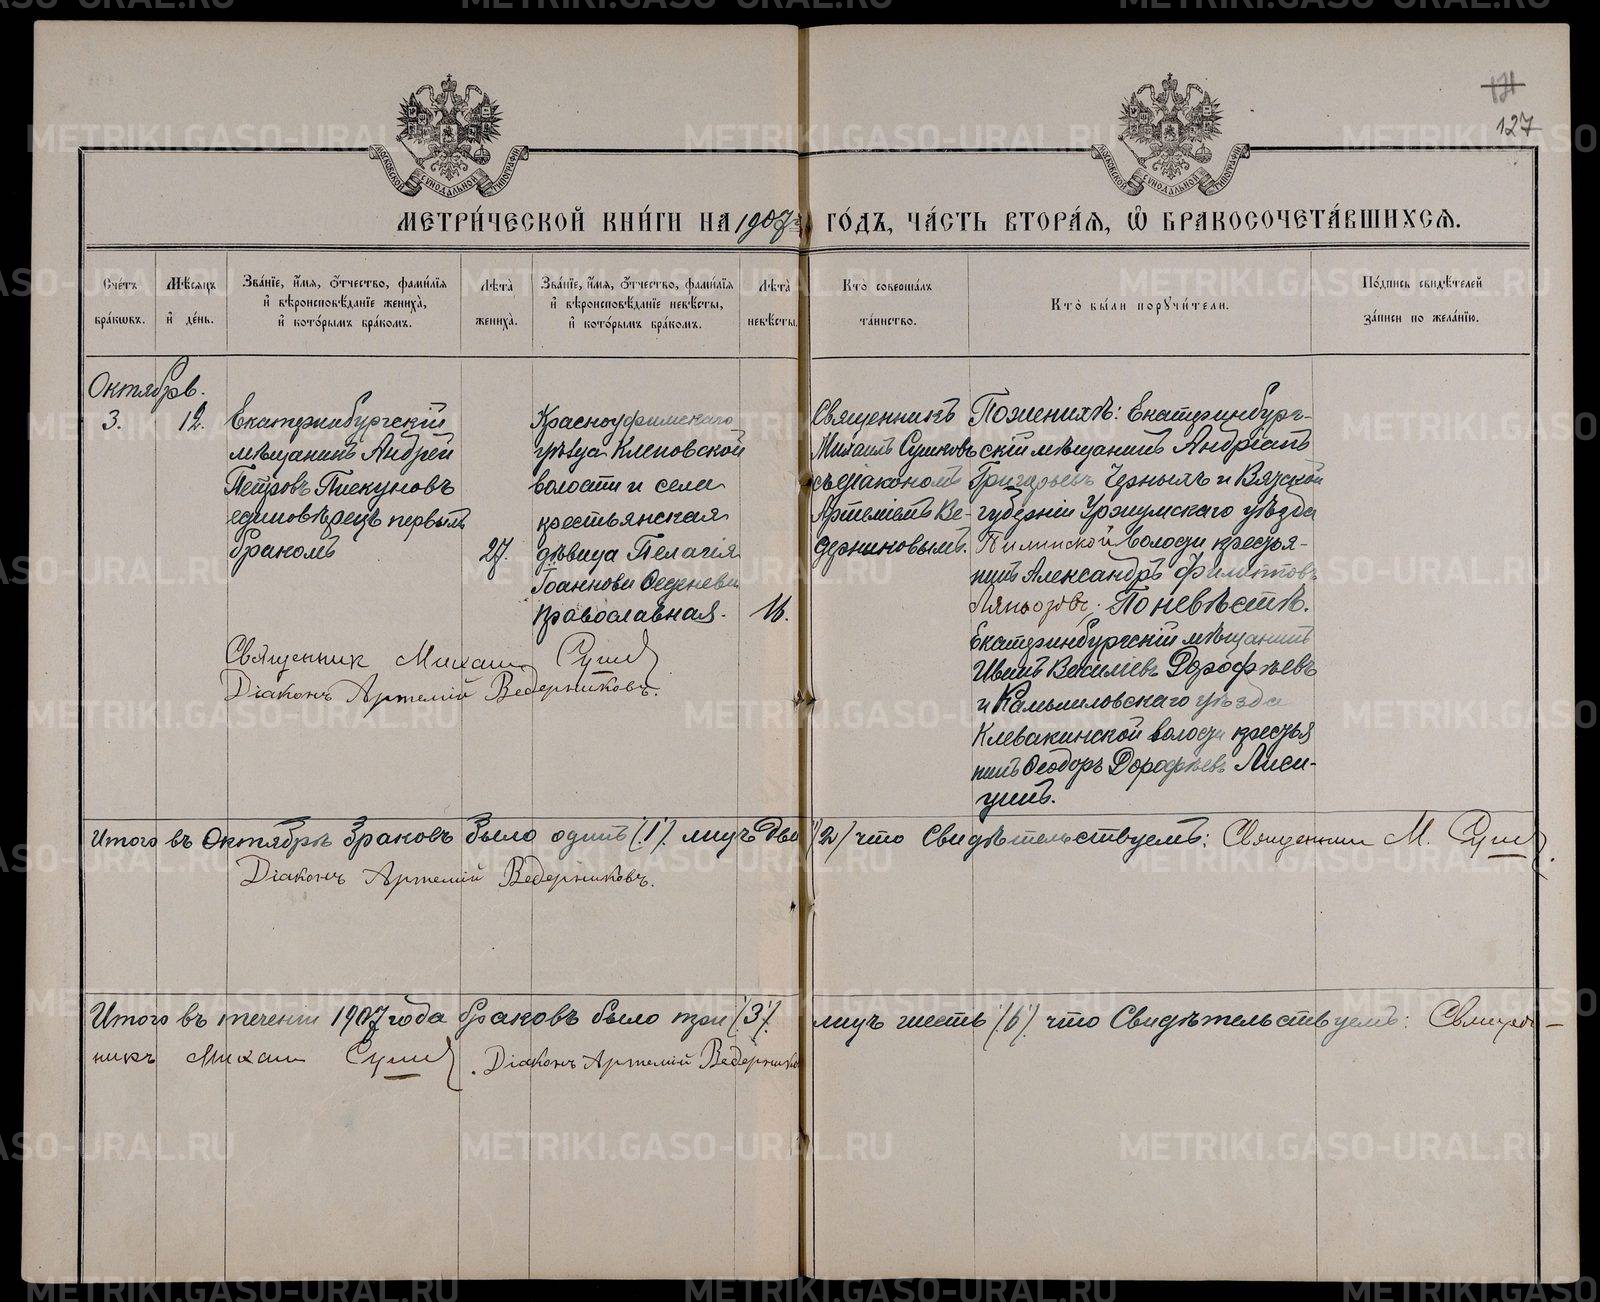 127
МЕТРИ́ЧЕСКОЙ КНИ́ГИ НА 1907 ГО́ДЪ, ЧА́СТЬ ВТОРА́Ѧ, Ѽ БРАКОСОЧЕТА́ВШИХСѦ.
МОСКОВСКОЙ СУНОДАЛЬНОЙ ТИПОГРАФІИ
МОСКОВСКОЙ СУНОДАЛЬНОЙ ТИПОГРАФІИ
Сче́тъ
бра́кѡвъ.
Мѣ́сѧцъ
и҆ де́нь.
Зва́нїе, и҆́мѧ, ѻ҆́тчество, фами́лїѧ
и҆ вѣроисповѣ́данїе жениха̀,
и҆ кото́рымъ бра́комъ.
Лѣ́та
жениха̀.
Зва́нїе, и҆́мѧ, ѻ҆́тчество, фами́лїѧ
и҆ вѣроисповѣ́данїе невѣ́сты,
и҆ кото́рымъ бра́комъ.
Лѣ́та
невѣ́сты.
Кто̀ соверша́лъ
та́инство.
Кто̀ бы́ли порꙋчи́тели.
По́дпись свидѣ́телей
за́писи по жела́нїю.
Октябрь.
3.
12.
Екатеринбургскій
мѣщанинъ Андрей
Петровъ Пискуновъ
единовѣрецъ первымъ
бракомъ
27.
Красноуфимскаго
уѣзда Кленовской
волости и села
крестьянская
дѣвица Пелагія
Іоаннова
православная.
16.
Священникъ
Михаилъ Сушковъ
съ діакономъ
Артеміемъ Ве-
дерниковымъ.
По женихѣ: Екатеринбург-
скій мѣщанинъ Андріанъ
Григорьевъ Черныхъ и Вятской
губерніи Уржумскаго уѣзда
волости крестья-
нинъ Александръ Филипповъ
По невѣстѣ.
Екатеринбургскій мѣщанинъ
Иванъ Васильевъ Дорофѣевъ
и Камышловскаго уѣзда
Клевакинской волости крестья
нинъ Ѳеодоръ Дорофѣевъ Лиси-
цинъ.
Священник Михаил Сушк
Діаконъ Артемій Ведерниковъ.
Итого въ Октябрѣ браковъ было одинъ (1) лицъ два (2) что свидѣтельствуемъ: Священник М. Сушк
Діаконъ Артемій Ведерниковъ.
Итого въ теченіи 1907 года браковъ было три (3) лицъ шесть (6) что свидѣтельствуемъ: Священ-
никъ Михаил Сушк. Діаконъ Артемій Ведерников
METRIKI.GASO-URAL.RU